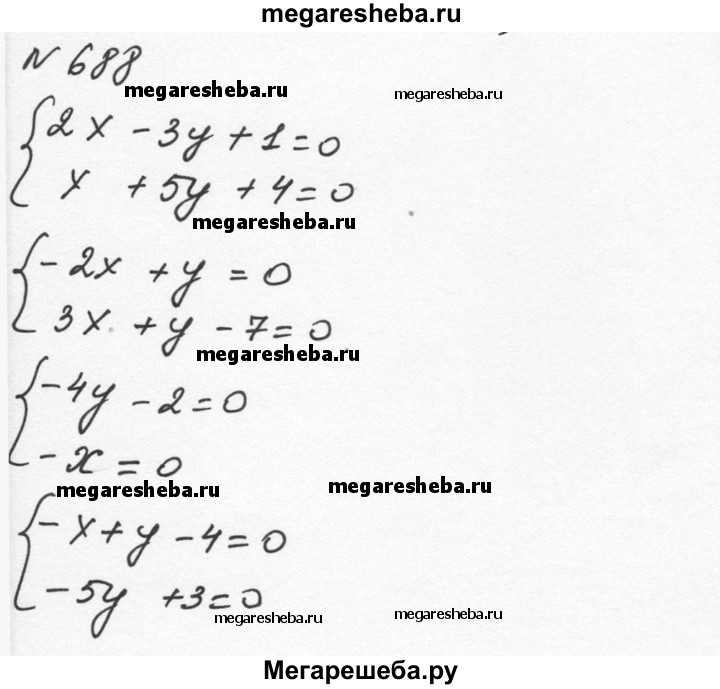 megaresheba.ru
N 688
megaresheba.ru megaresheba.ru
2x - 3y + 1 = 0
x + 5y + 4 = 0
megaresheba.ru
- 2x + y = 0
3x + y - 7 = 0
megaresheba.ru
- 4y - 2 = 0
- x = 0
megaresheba.ru megaresheba.ru
- x + y - 4 = 0
- 5y + 3 = 0
megaresheba.ru megaresheba.ru
Мегарешеба.ру